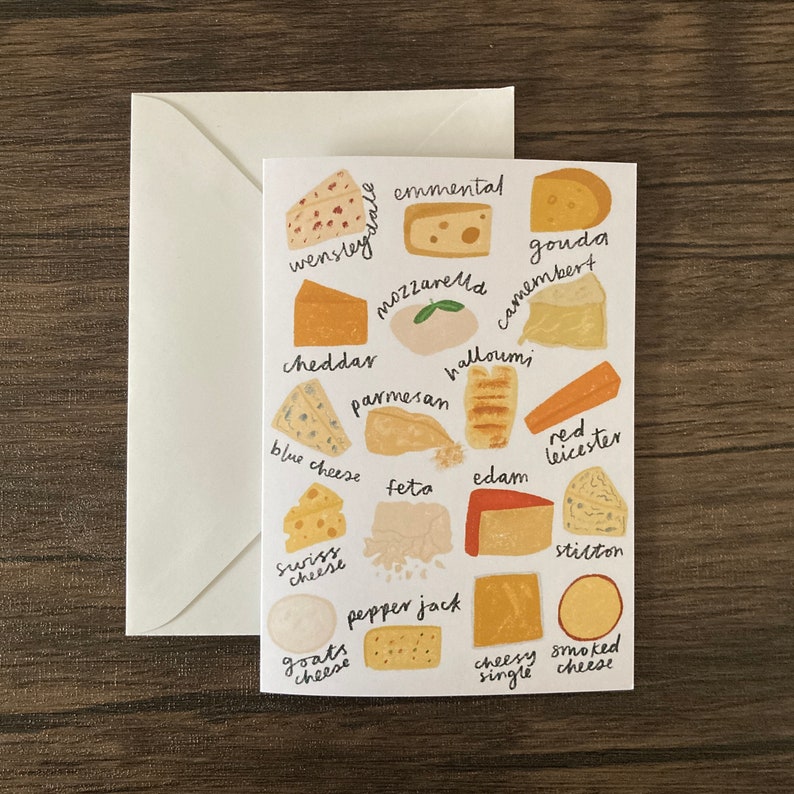 wensleydale
emmental
gouda
cheddar
mozzarella
camembert
blue cheese
parmesan
halloumi
red
leicester
swiss
cheese
feta
edam
stilton
goats
cheese
pepper jack
cheesy
single
smoked
cheese